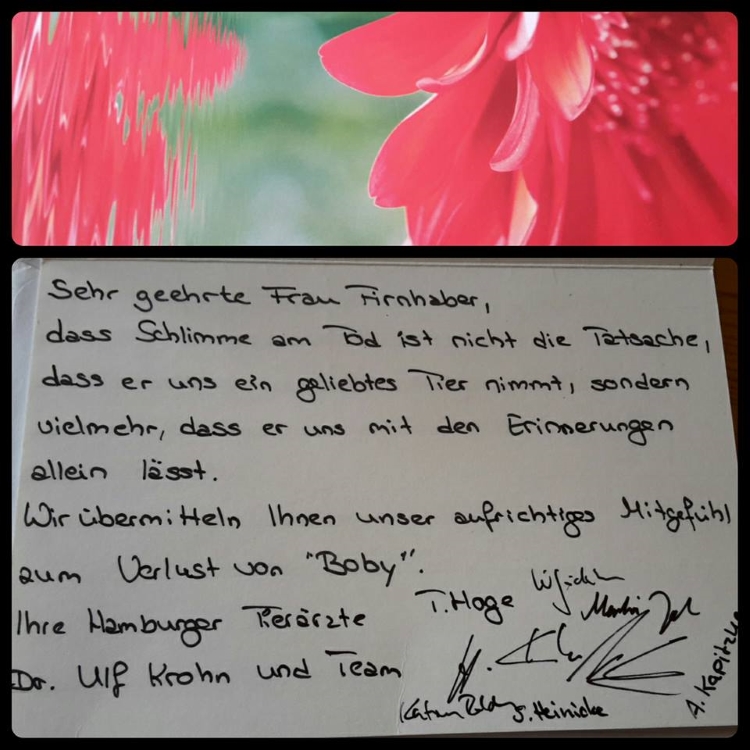 Sehr geehrte Frau Firnhaber,
dass Schlimme am Tod ist nicht die Tatsache,
dass er uns ein geliebtes Tier nimmt, sondern
vielmehr, dass er uns mit den Erinnerungen
allein lässt.
Wir übermitteln Ihnen unser aufrichtiges Mitgefühl
zum Verlust von "Boby".
Ihre Hamburger Tierärzte
Dr. Ulf Krohn und Team
T. Hoge
J. Heinicke
A. Kapitzke